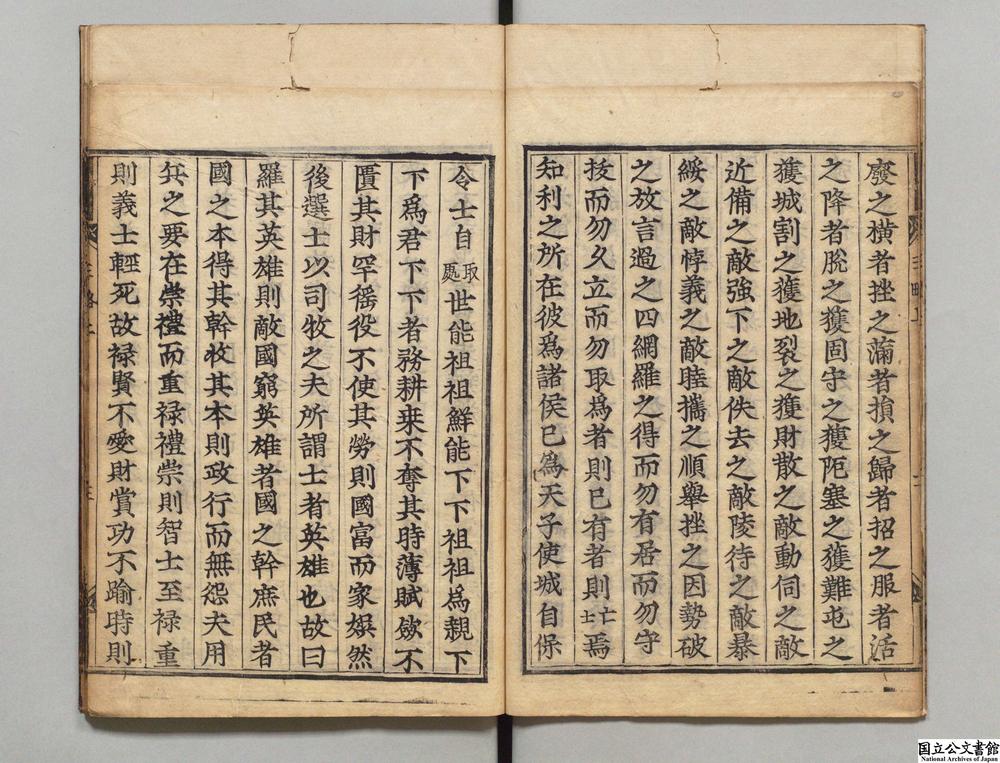 廢之橫者挫之滿者損之歸者招之服者活
之降者脫之獲固守之獲阨塞之獲難屯之
獲城割之獲地裂之獲財散之敵動伺之敵
近備之敵強下之敵佚去之敵陵待之敵暴
綏之敵悖義之敵睦攜之順舉挫之因勢破
之放言過之四網羅之得而勿有居而勿守
拔而勿久立而勿取為者則已有者則亡士焉
知利之所在彼為諸侯已為天子使城自保
令士自取處世能祖祖鮮能下下祖祖為親下
下為君下下者務耕桒不奪其時薄賦歛不
匱其財罕徭役不使其勞則國富而家娛然
後選士以司牧之夫所謂士者英雄也故曰
羅其英雄則敵國窮英雄者國之幹庶民者
國之本得其幹收其本則政行而無怨夫用
兵之要在崇禮而重祿禮崇則智士至祿重
則義士輕死故祿賢不愛財賞功不踰時則
三略上
二
三略上
三
国立公文書館
National Archives of Japan